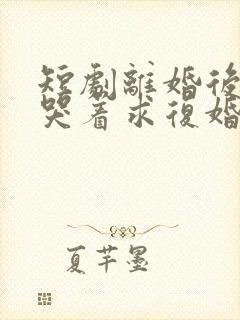 短劇離婚後
哭着求復婚
夏芊墨